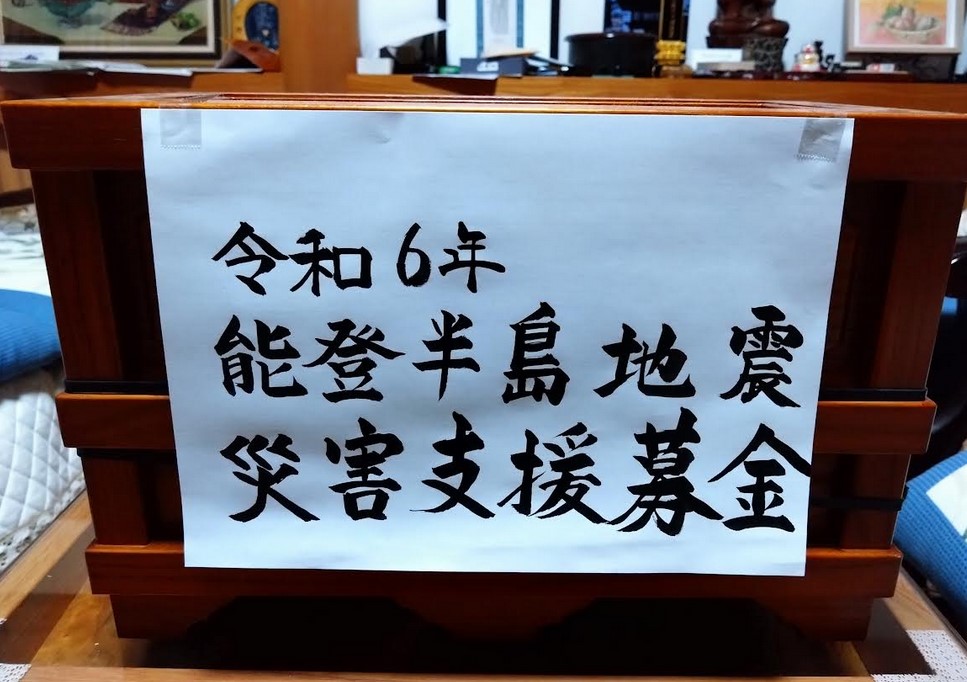 令和6年
能登半島地震
災害支援募金